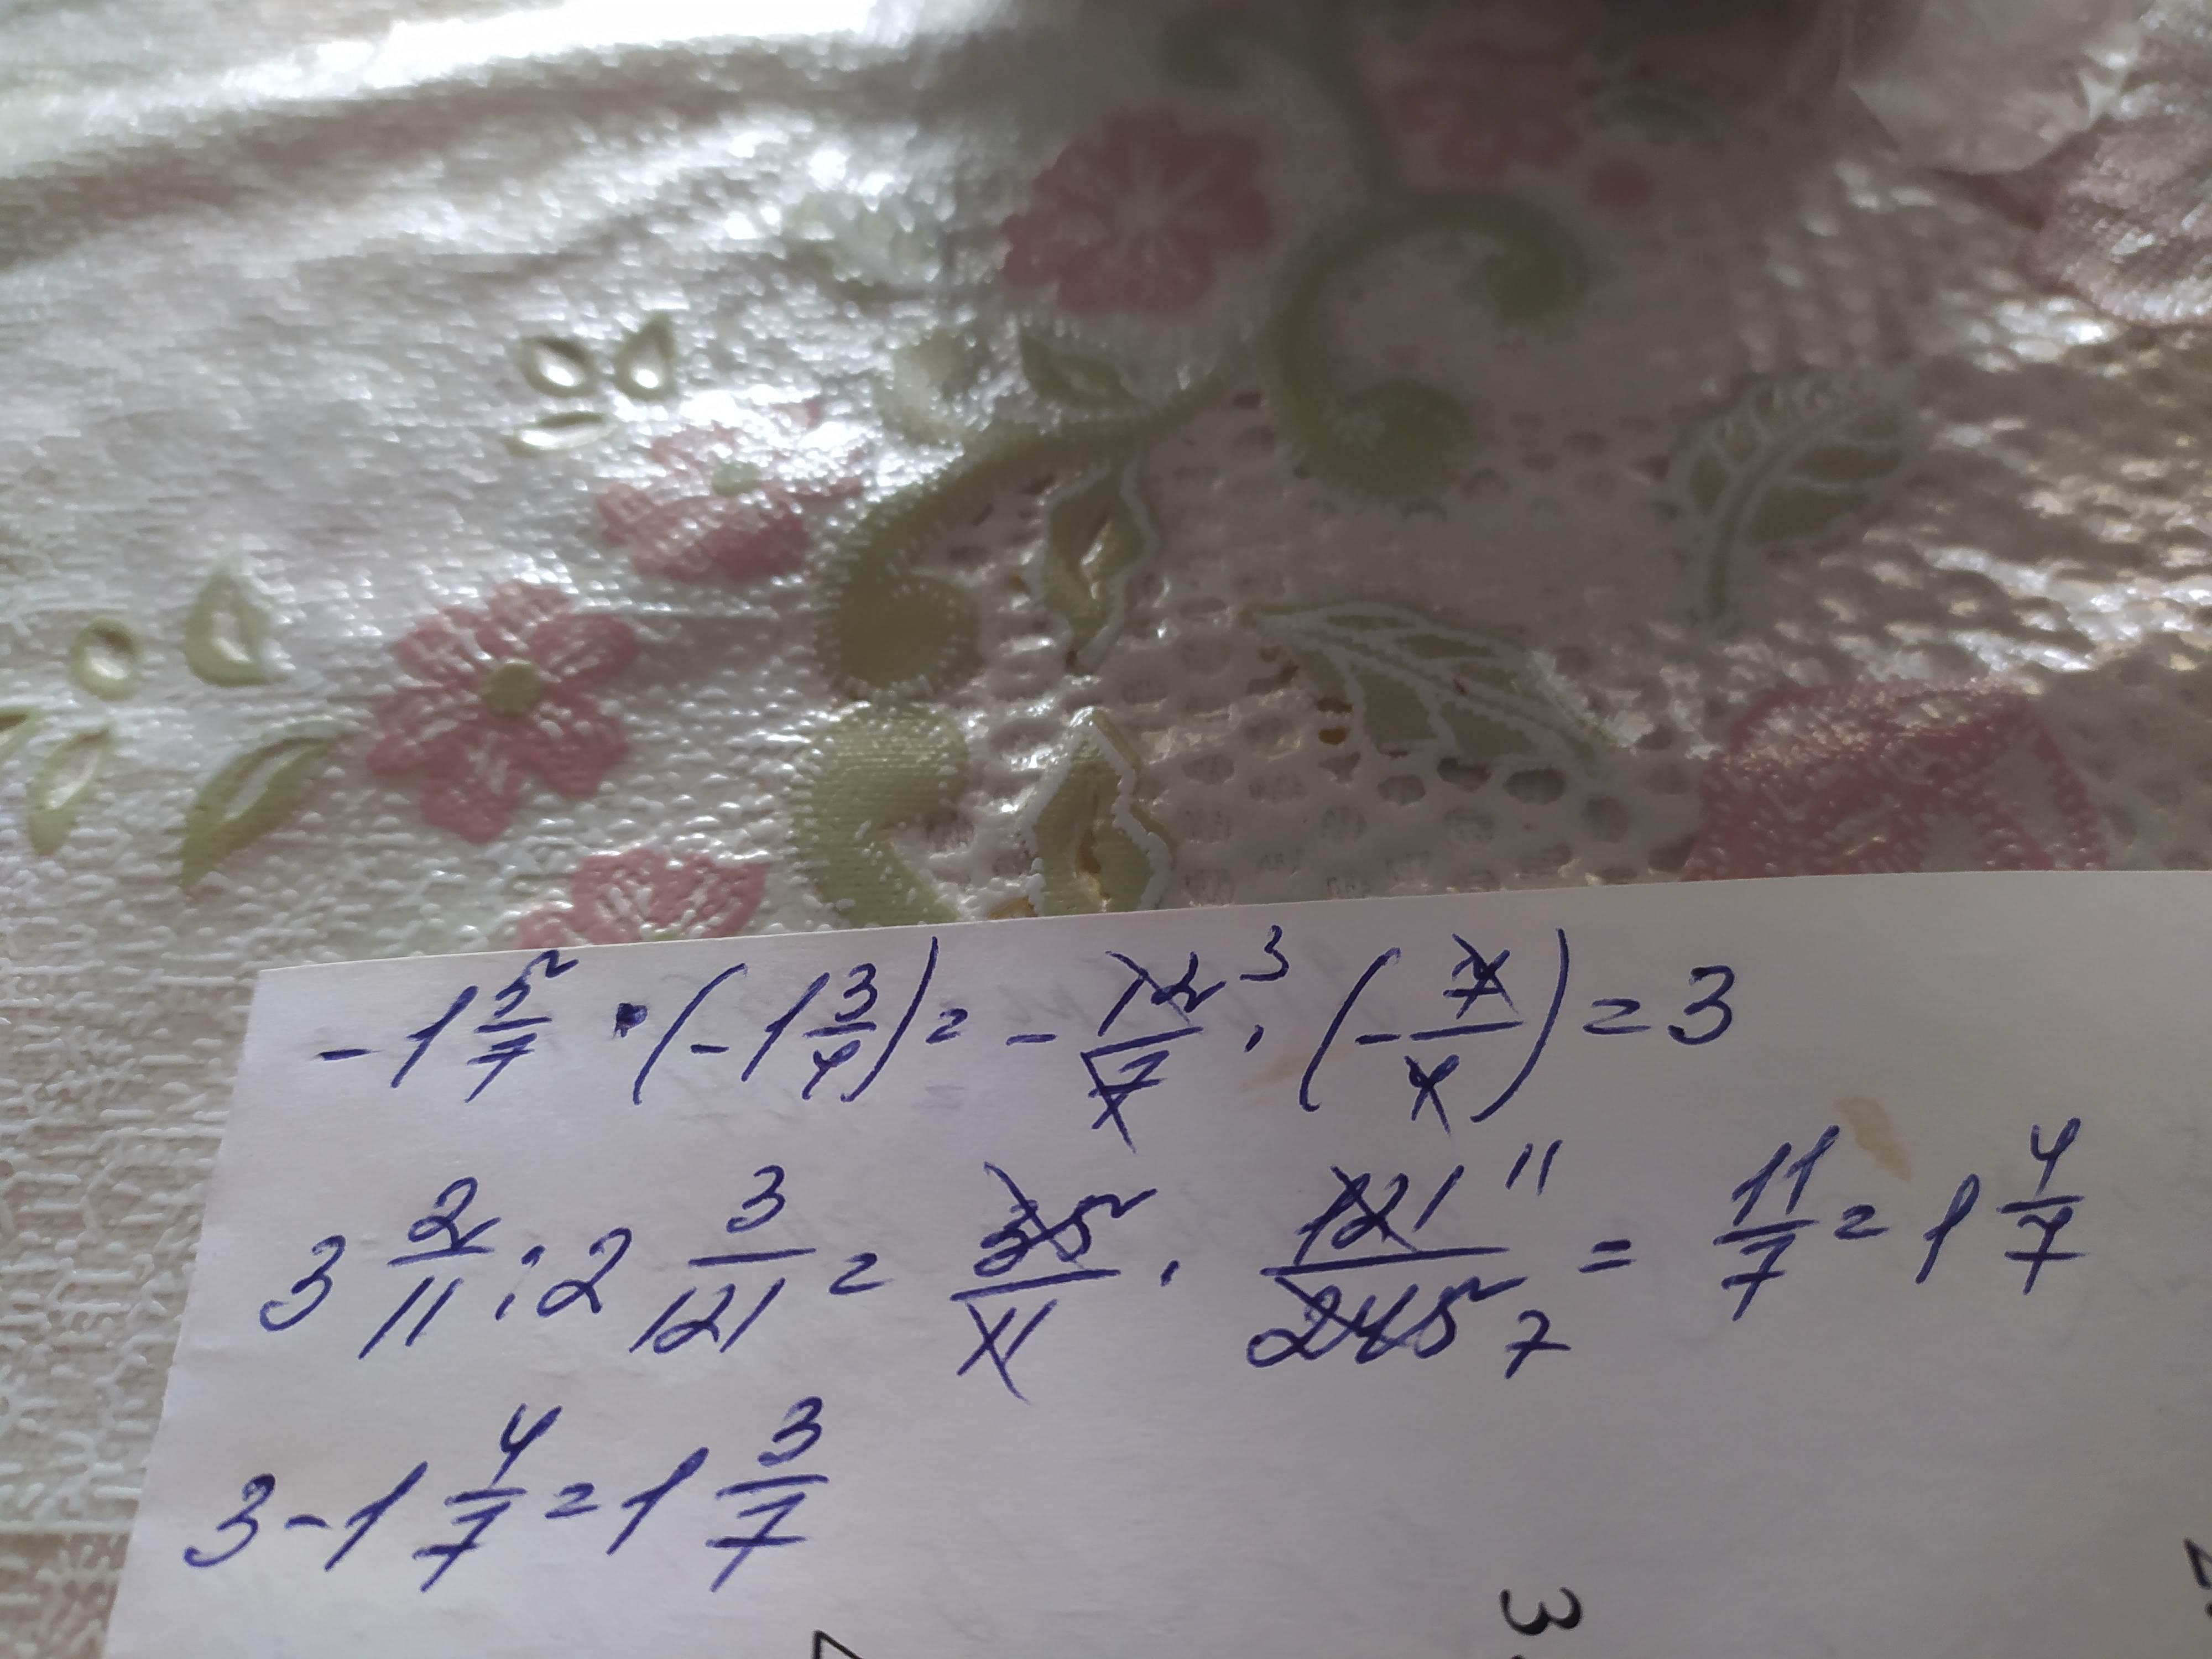 -1 5/7 · (-1 3/4) = - 12/7 3 · (- 7/4) = 3
3 2/11 : 2 3/121 = 35/11 · 121/245 11 7 = 11/7 = 1 4/7
3 - 1 4/7 = 1 3/7
3